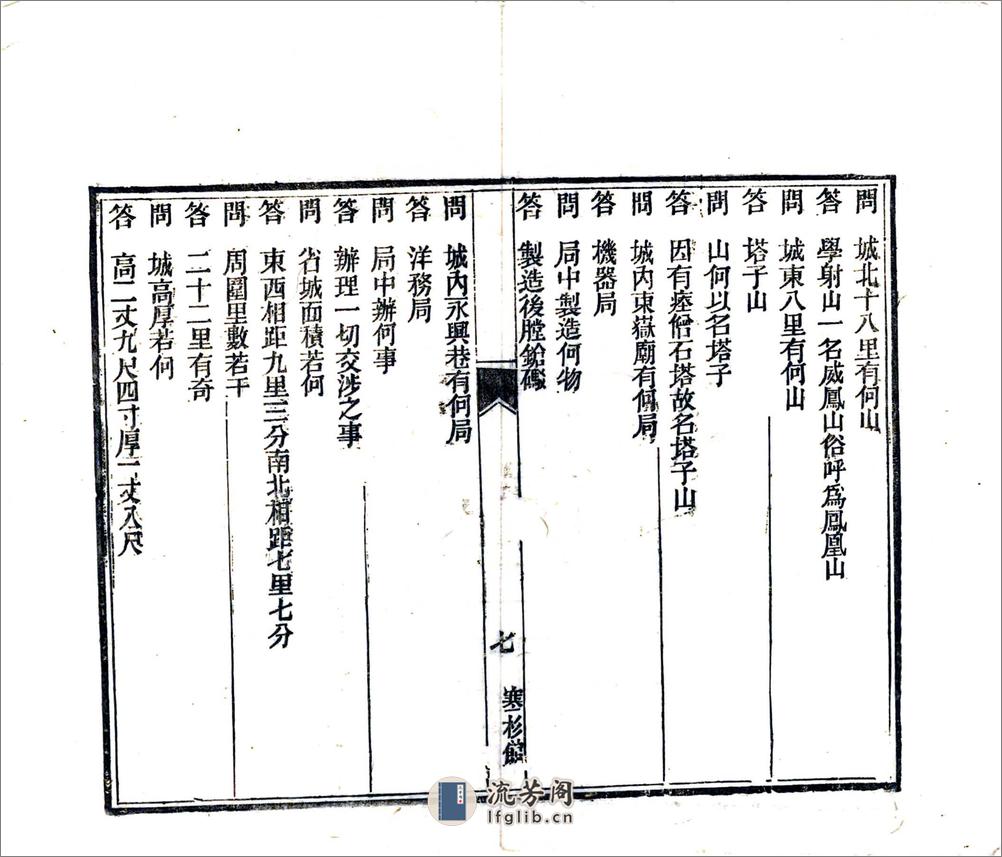 問 城北十八里有何山
答 學射山一名威鳳山俗呼爲鳳凰山
問 城東八里有何山
答 塔子山
問 山何以名塔子
答 因有瘞僧石塔故名塔子山
問 城內東嶽廟有何局
答 機器局
問 局中製造何物
答 製造後膛鎗礮
七 寒杉館
問 城內永興巷有何局
答 洋務局
問 局中辦何事
答 辦理一切交涉之事
問 省城面積若何
答 東西相距九里三分南北相距七里七分
問 周圍里數若干
答 二十二里有奇
問 城高厚若何
答 高二丈九尺四寸厚一丈八尺
流芳阁
lfglib.cn